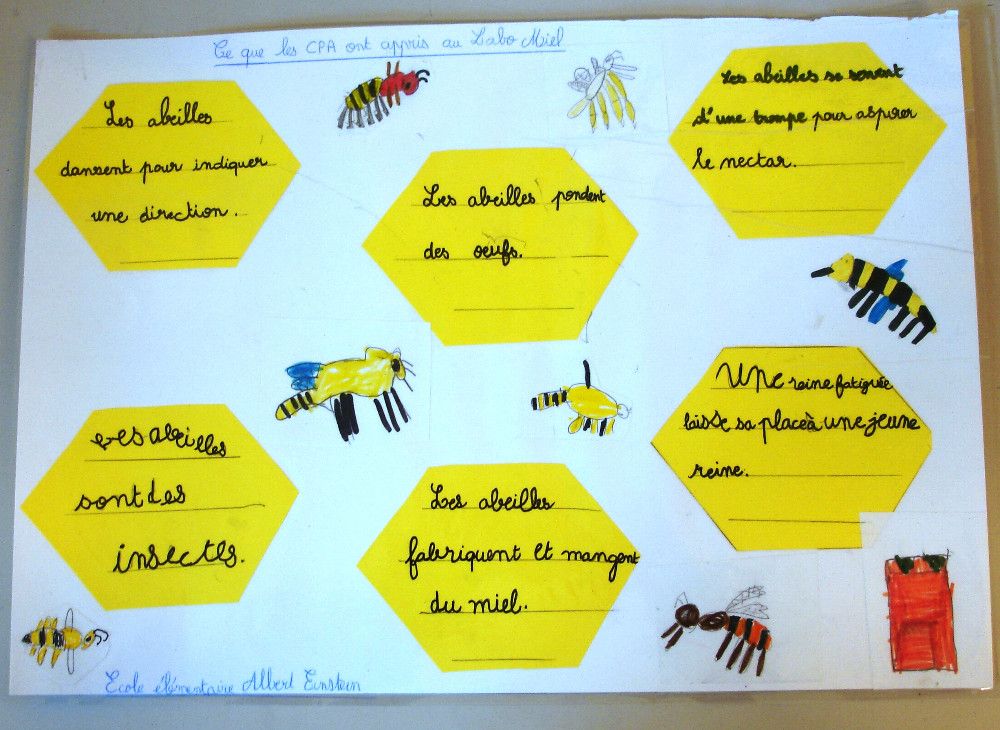 Ce que les CPA ont appris au Labo Miel
Les abeilles
dansent pour indiquer
une direction.
Les abeilles pondent
des oeufs.
Les abeilles se servent
d'une trompe pour aspirer
le nectar.
Les abeilles
sont des
insectes.
Les abeilles
fabriquent et mangent
du miel.
Une reine fatiguée
laisse sa place à une jeune
reine.
Ecole élémentaire Albert Einstein